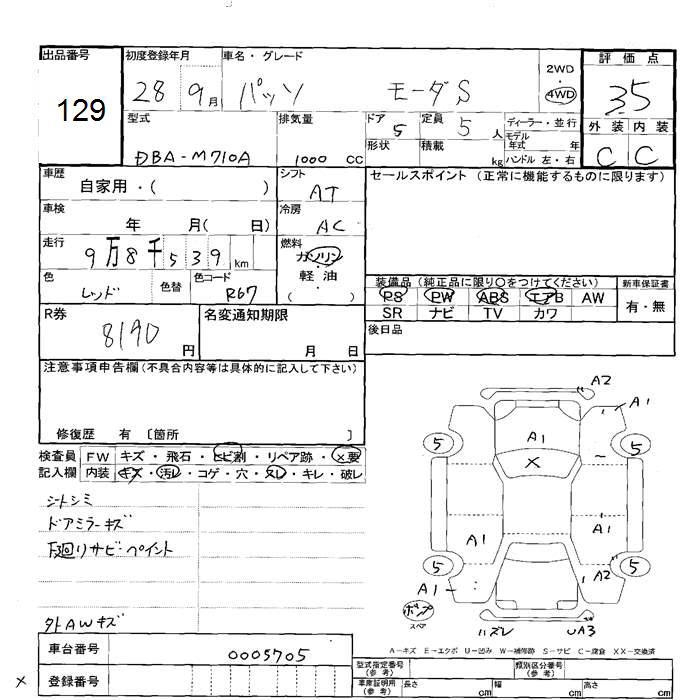 出品番号
129
初度登録年月
28 9月
車名・グレード
パッソ モーダS
2WD
・
4WD
評価点
3.5
外装 内装
C C
型式
DBA-M710A
排気量
1000 CC
ドア
5
定員
5 人
形状
積載
kg
ディーラー・並行
モデル年式 年
ハンドル 左・右
車歴
自家用・( )
シフト
AT
セールスポイント (正常に機能するものに限ります)
車検
年 月( 日)
冷房
AC
走行
9万8千539 km
燃料
ガソリン
軽・油
( )
色
レッド
色替
色コード
R67
装備品 (純正品に限り○をつけてください)
PS PW ABS エアB AW
SR ナビ TV カワ
新車保証書
有・無
後日品
R券
8190 円
名変通知期限
月 日
注意事項申告欄 (不具合内容等は具体的に記入して下さい)
修復歴 有 〔箇所 〕
検査員記入欄
FW キズ・飛石・ヒビ割・リペア跡・×要
内装 キズ・汚レ・コゲ・穴・スレ・キレ・破レ
シートシミ
ドアミラーキズ
下廻りサビ・ペイント
外AWキズ
A2
A1
5
A1
5
×
A1
A1
5
A2
5
A1
ポンプ
スペア
ハズレ
UA3
A-キズ E-エクボ U-凹み W-補修跡 S-サビ C-腐食 XX-交換済
車台番号
0005705
×
登録番号
型式指定番号
(参考)
類別区分番号
(参考)
車庫証明用
(参考)
長さ cm
幅 cm
高さ cm